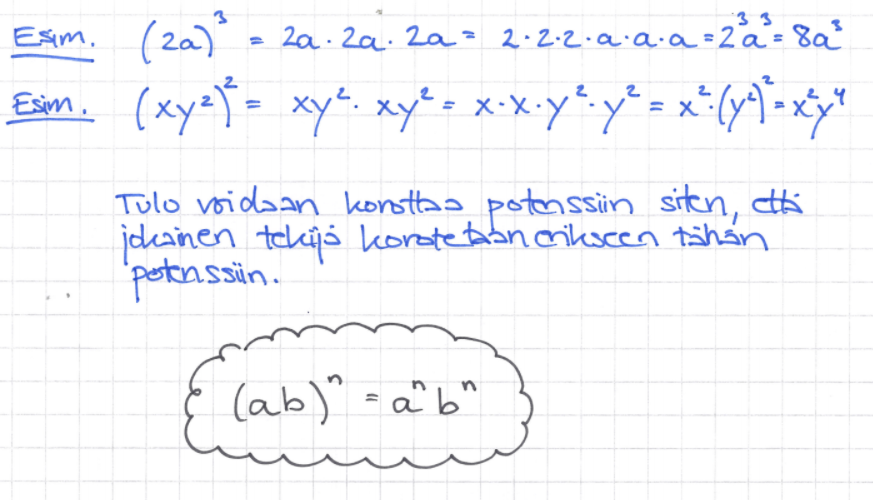 Esim. (2a)³ = 2a · 2a · 2a = 2·2·2·a·a·a = 2³a³ = 8a³
Esim. (xy²)² = xy² · xy² = x·x·y²·y² = x²·(y²)² = x²y⁴
Tulo voidaan korottaa potenssiin siten, että
jokainen tekijä korotetaan erikseen tähän
potenssiin.
(ab)ⁿ = aⁿbⁿ